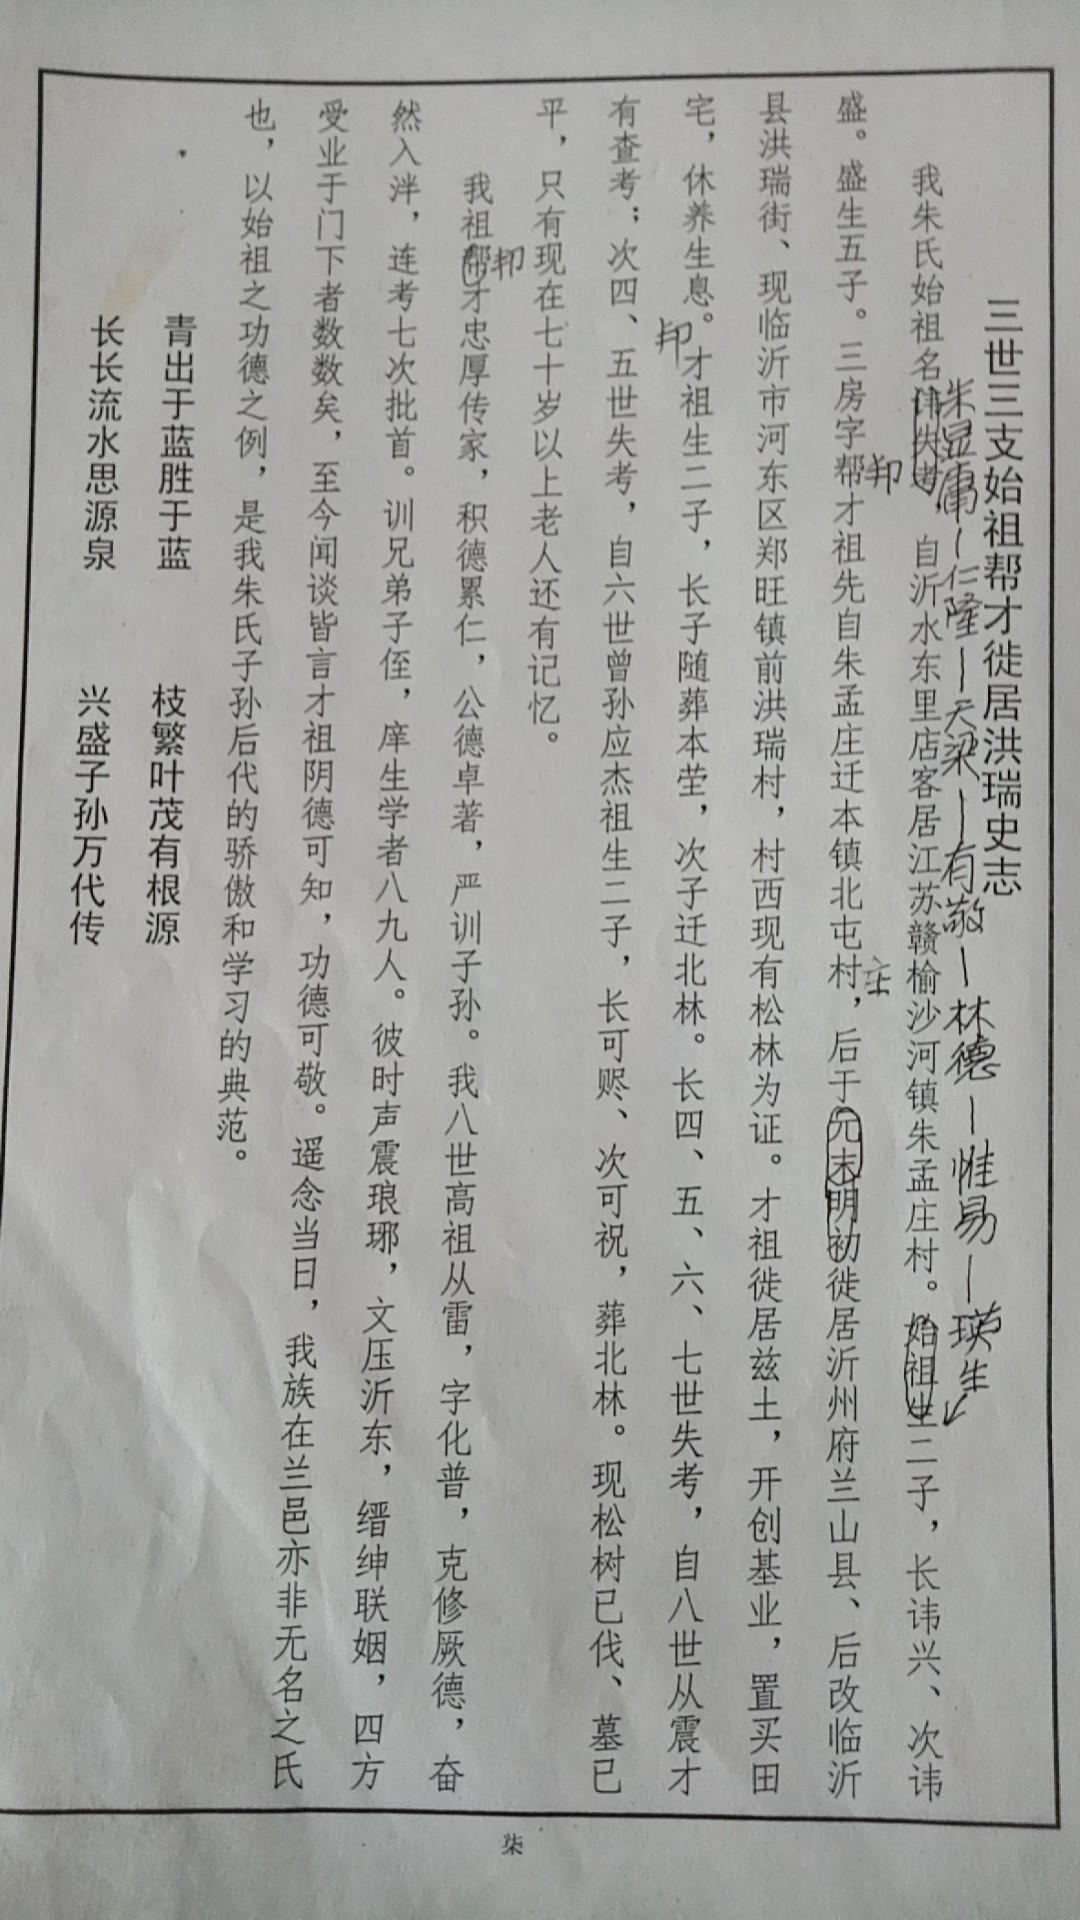 三世三支始祖帮才徙居洪瑞史志
朱显庸—仁隆—天梁—有敬—林德—惟易—瑛生
我朱氏始祖名讳失考，自沂水东里店客居江苏赣榆沙河镇朱孟庄村。始祖生二子，长讳兴、次讳
盛。盛生五子。三房字帮才祖先自朱孟庄迁本镇北屯村，后于元末明初徙居沂州府兰山县、后改临沂
庄
县洪瑞街、现临沂市河东区郑旺镇前洪瑞村，村西现有松林为证。才祖徙居兹土，开创基业，置买田
宅，休养生息。才祖生二子，长子随葬本茔，次子迁北林。长四、五、六、七世失考，自八世从震才
有查考；次四、五世失考，自六世曾孙应杰祖生二子，长可赆、次可祝，葬北林。现松树已伐、墓已
平，只有现在七十岁以上老人还有记忆。
我祖帮才忠厚传家，积德累仁，公德卓著，严训子孙。我八世高祖从雷，字化普，克修厥德，奋
然入泮，连考七次批首。训兄弟子侄，庠生学者八九人。彼时声震琅琊，文压沂东，缙绅联姻，四方
受业于门下者数数矣，至今闻谈皆言才祖阴德可知，功德可敬。遥念当日，我族在兰邑亦非无名之氏
也，以始祖之功德之例，是我朱氏子孙后代的骄傲和学习的典范。
青出于蓝胜于蓝　枝繁叶茂有根源
长长流水思源泉　兴盛子孙万代传
柒